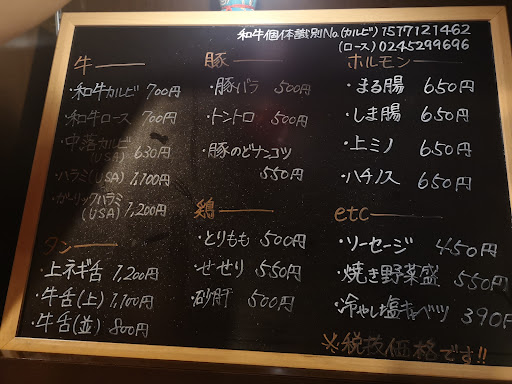 和牛個体識別No.(カルビ)1517121462
(ロース)0245299696
牛
・和牛カルビ 700円
・和牛ロース 700円
・中落カルビ 630円
(USA)
・ハラミ(USA) 1,100円
・ガーリックハラミ
(USA) 1,200円
タン
・上ネギ舌 1,200円
・牛舌(上) 1,100円
・牛舌(並) 800円
豚
・豚バラ 500円
・トントロ 500円
・豚のどナンコツ
550円
鶏
・とりもも 500円
・せせり 550円
・砂肝 500円
ホルモン
・まる腸 650円
・しま腸 650円
・上ミノ 650円
・ハチノス 650円
etc
・ソーセージ 450円
・焼き野菜盛 550円
・冷やし塩キャベツ 390円
※税抜価格です!!